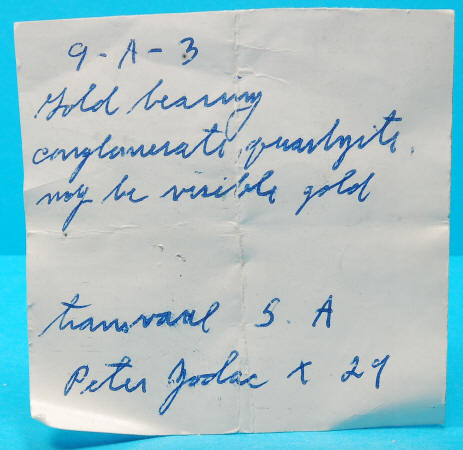 9-A-3
Gold bearing
conglomerate, quartzite.
may be visible gold
transvaal S. A
Peter Zodac x 29